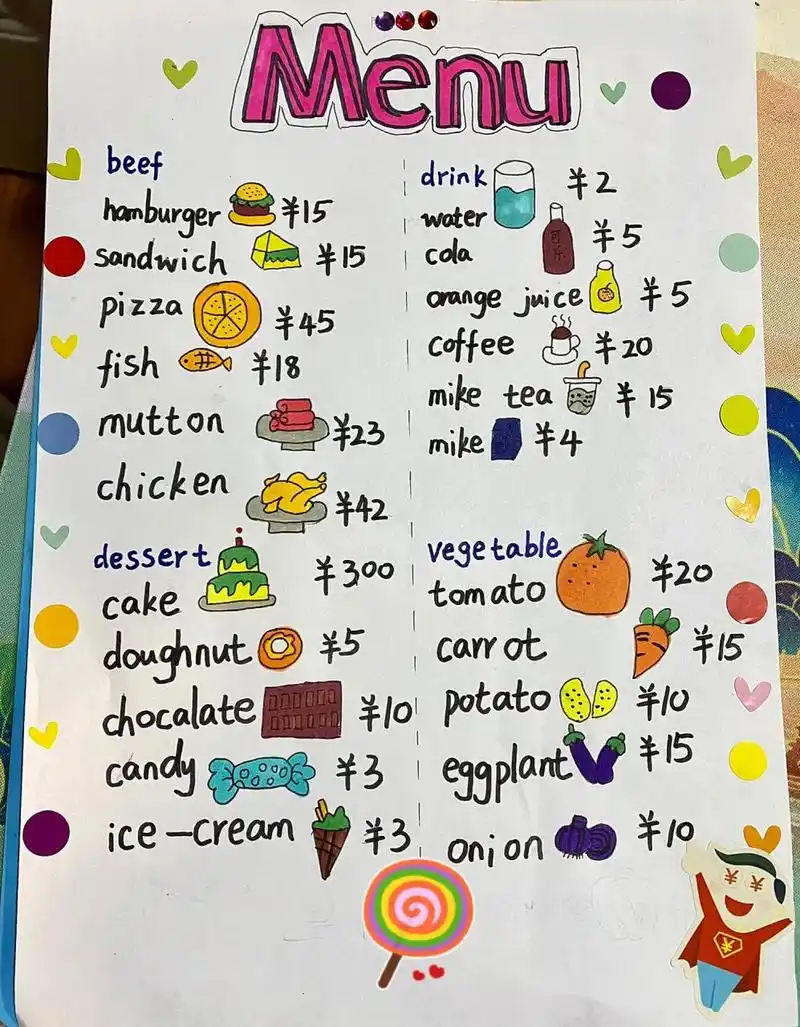 Menu
beef
hamburger ¥15
sandwich ¥15
pizza ¥45
fish ¥18
mutton ¥23
chicken ¥42
dessert
cake ¥300
doughnut ¥5
chocalate ¥10
candy ¥3
ice-cream ¥3
drink
water ¥2
cola 可乐 ¥5
orange juice ¥5
coffee ¥20
mike tea ¥15
mike ¥4
vegetable
tomato ¥20
carrot ¥15
potato ¥10
eggplant ¥15
onion ¥10
¥ ¥
¥